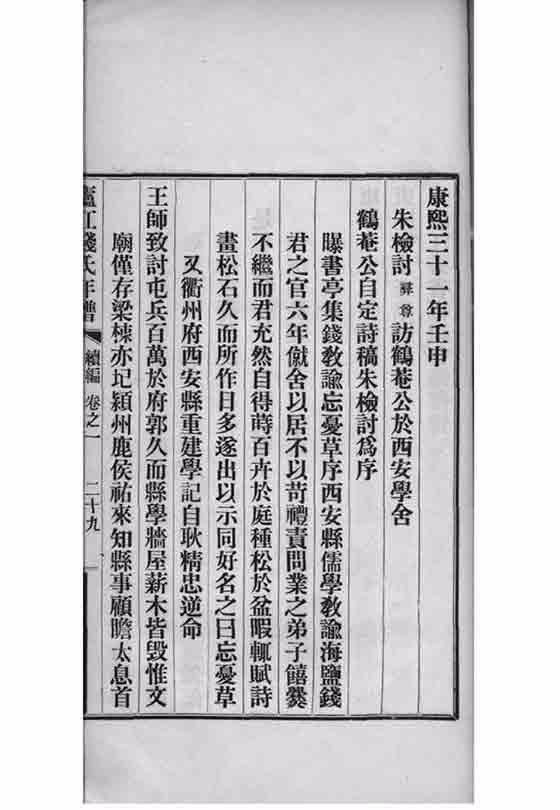 康熙三十一年壬申
朱檢討彝尊訪鶴菴公於西安學舍
鶴菴公自定詩稿朱檢討爲序
曝書亭集錢敎諭忘憂草序西安縣儒學敎諭海鹽錢
君之官六年僦舍以居不以苛禮責問業之弟子饎爨
不繼而君充然自得蒔百卉於庭種松於盆暇輒賦詩
畫松石久而所作日多遂出以示同好名之曰忘憂草
又衢州府西安縣重建學記自耿精忠逆命
王師致討屯兵百萬於府郭久而縣學牆屋薪木皆毀惟文
廟僅存梁棟亦圮潁州鹿侯祐來知縣事顧瞻太息首
廬江錢氏年譜 續編 卷之一 二十九